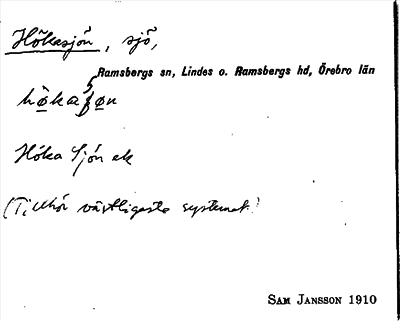 Hökasjön, sjö,
Ramsbergs sn, Lindes o. Ramsbergs hd, Örebro län
Höka Sjön ek
(Tillhör västligaste systemet.)
SAM JANSSON 1910